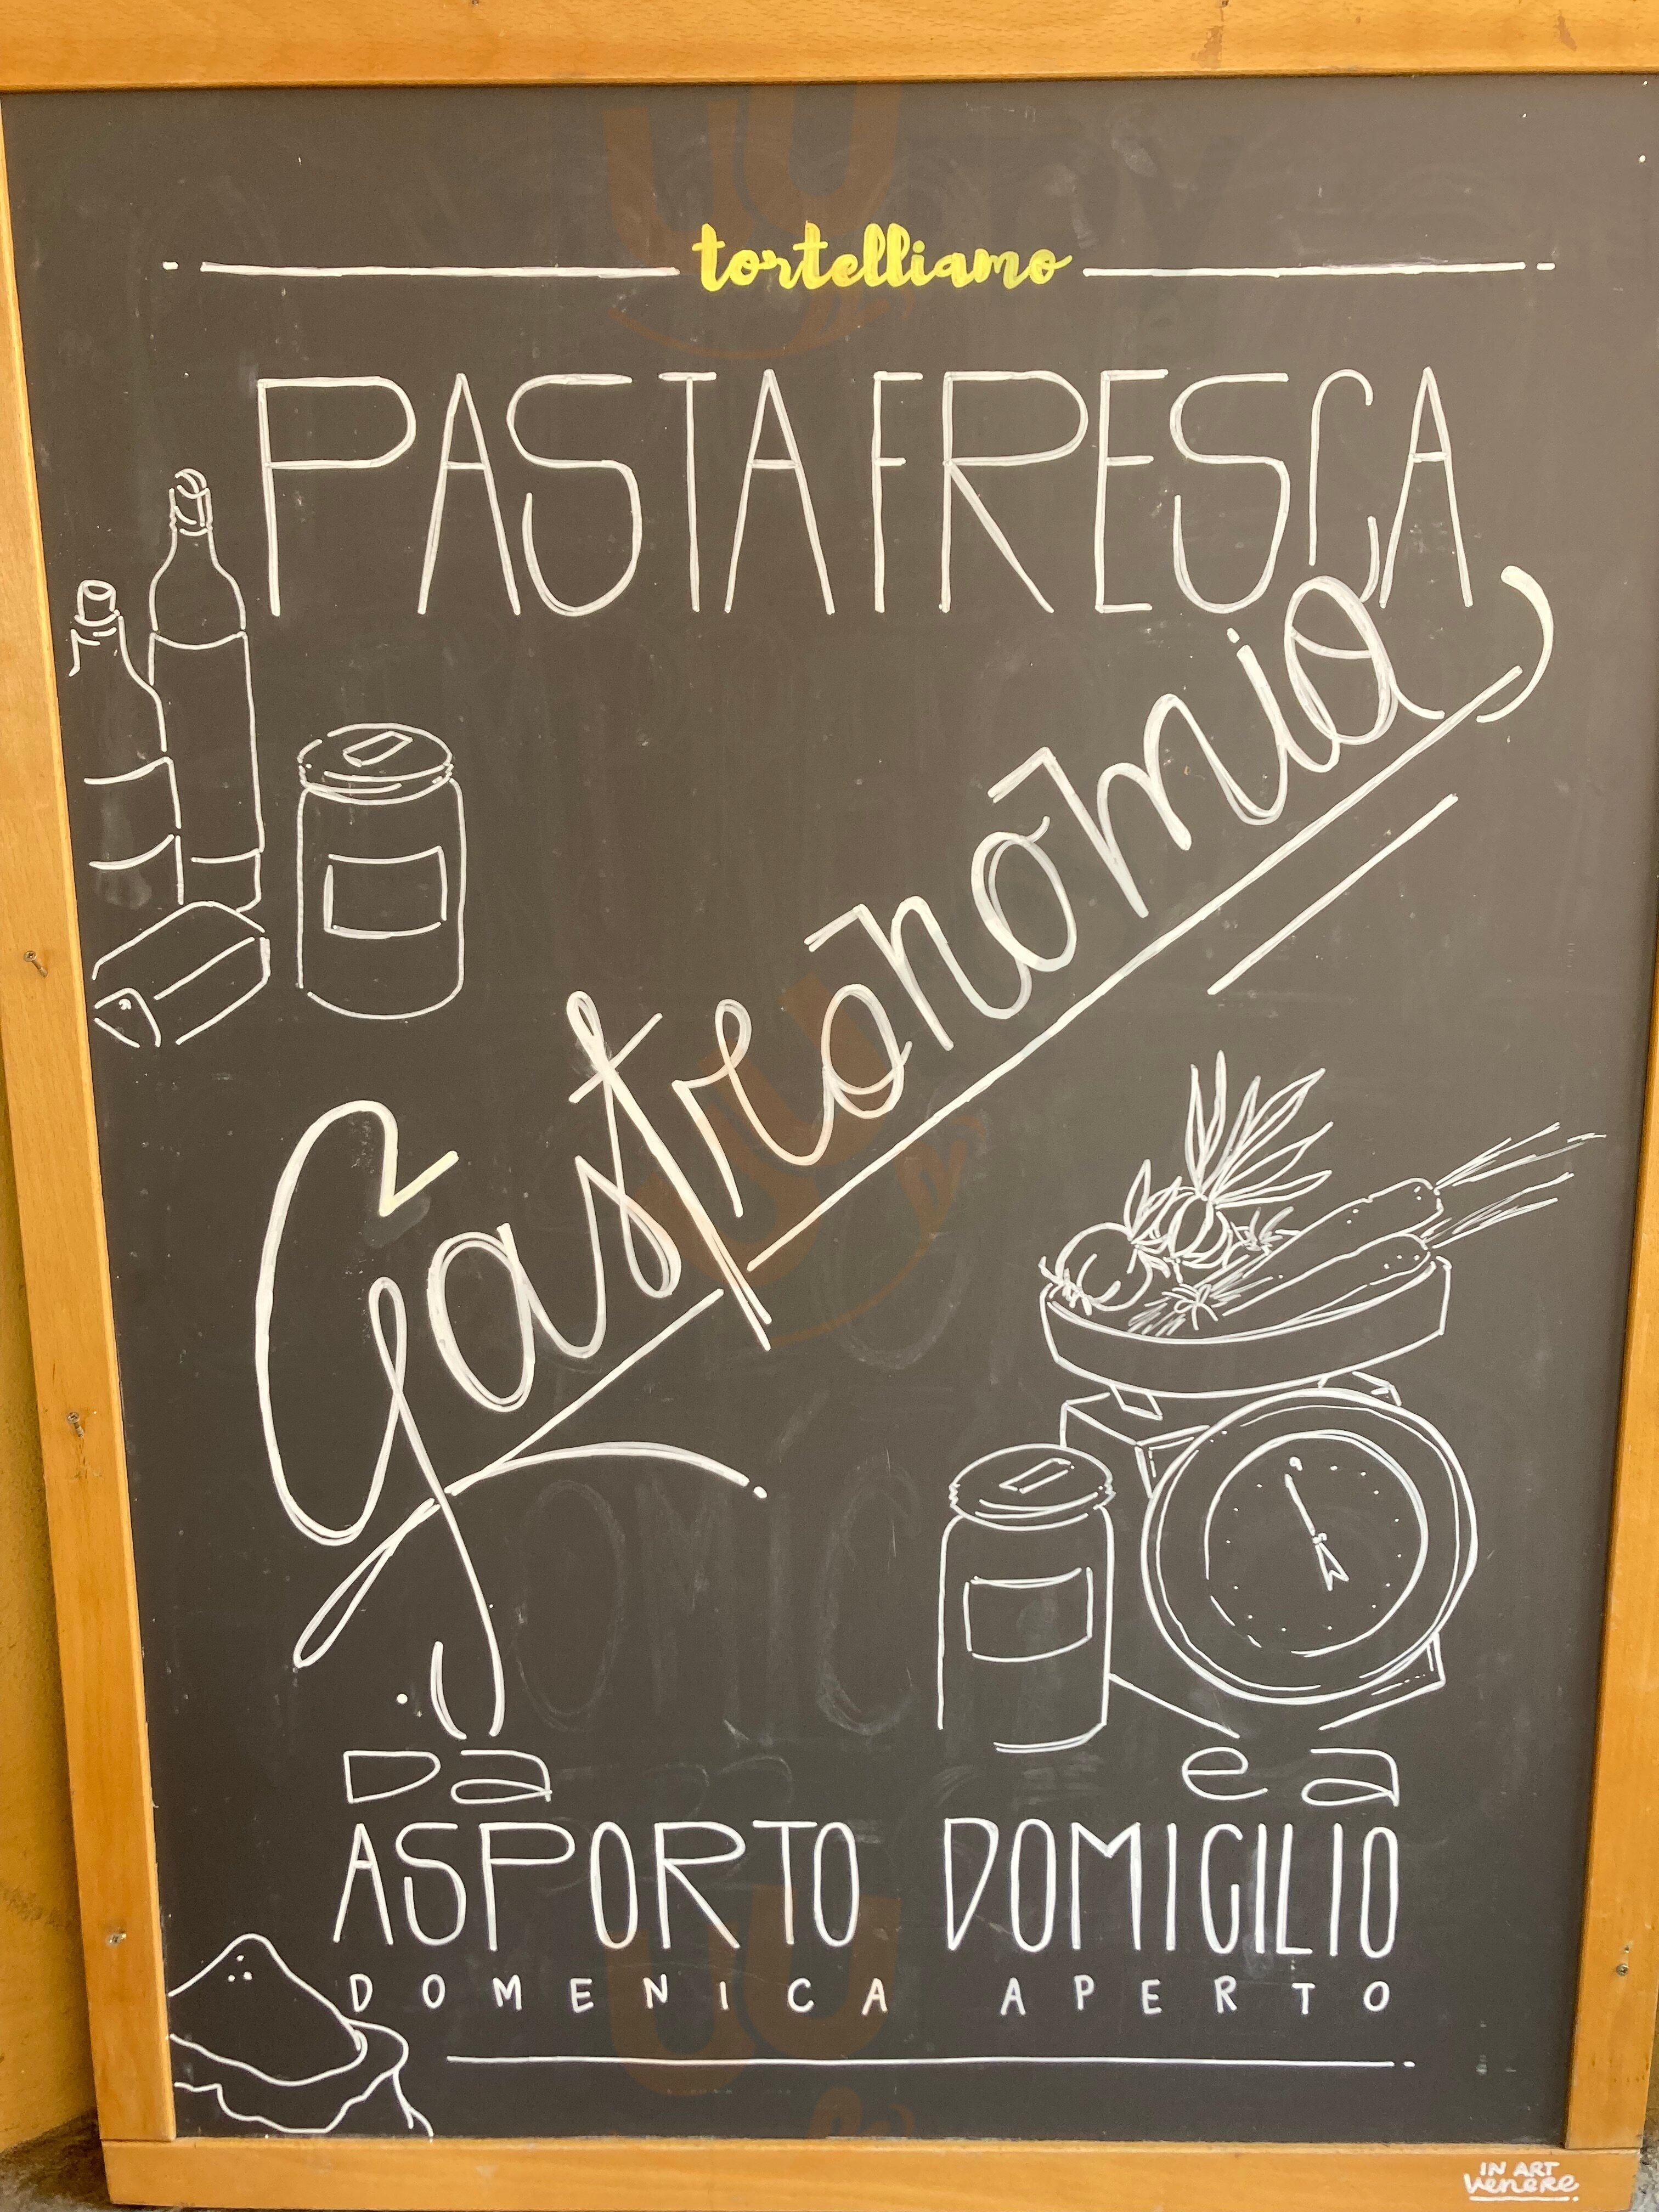 tortelliamo
PASTA FRESCA
Gastronomia
Da e a
ASPORTO DOMICILIO
DOMENICA APERTO
IN ART
Venere